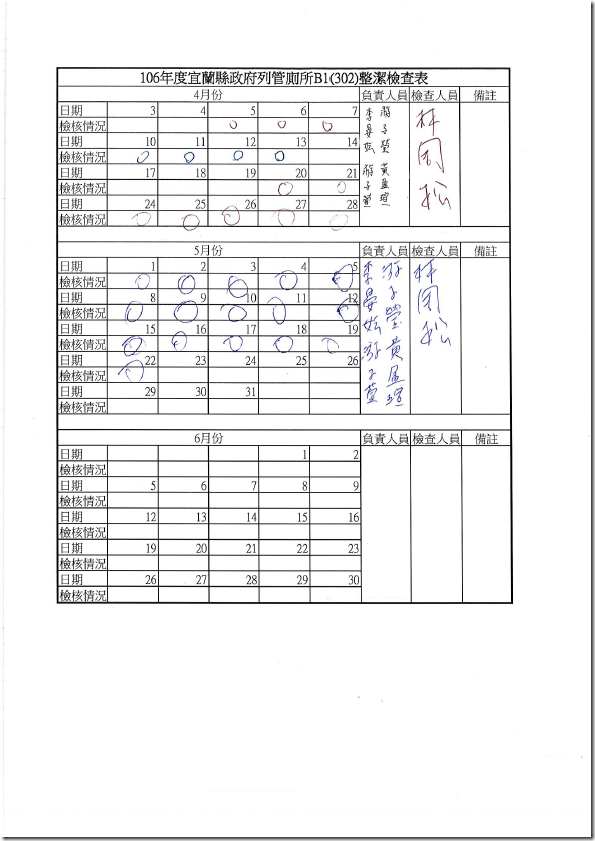 106年度宜蘭縣政府列管廁所B1(302)整潔檢查表
4月份 負責人員 檢查人員 備註
日期 3 4 5 6 7
檢核情況
日期 10 11 12 13 14
檢核情況
日期 17 18 19 20 21
檢核情況
日期 24 25 26 27 28
檢核情況
林
周
松
5月份 負責人員 檢查人員 備註
日期 1 2 3 4 5
檢核情況
日期 8 9 10 11 12
檢核情況
日期 15 16 17 18 19
檢核情況
日期 22 23 24 25 26
檢核情況
日期 29 30 31
檢核情況
林
周
松
6月份 負責人員 檢查人員 備註
日期 1 2
檢核情況
日期 5 6 7 8 9
檢核情況
日期 12 13 14 15 16
檢核情況
日期 19 20 21 22 23
檢核情況
日期 26 27 28 29 30
檢核情況